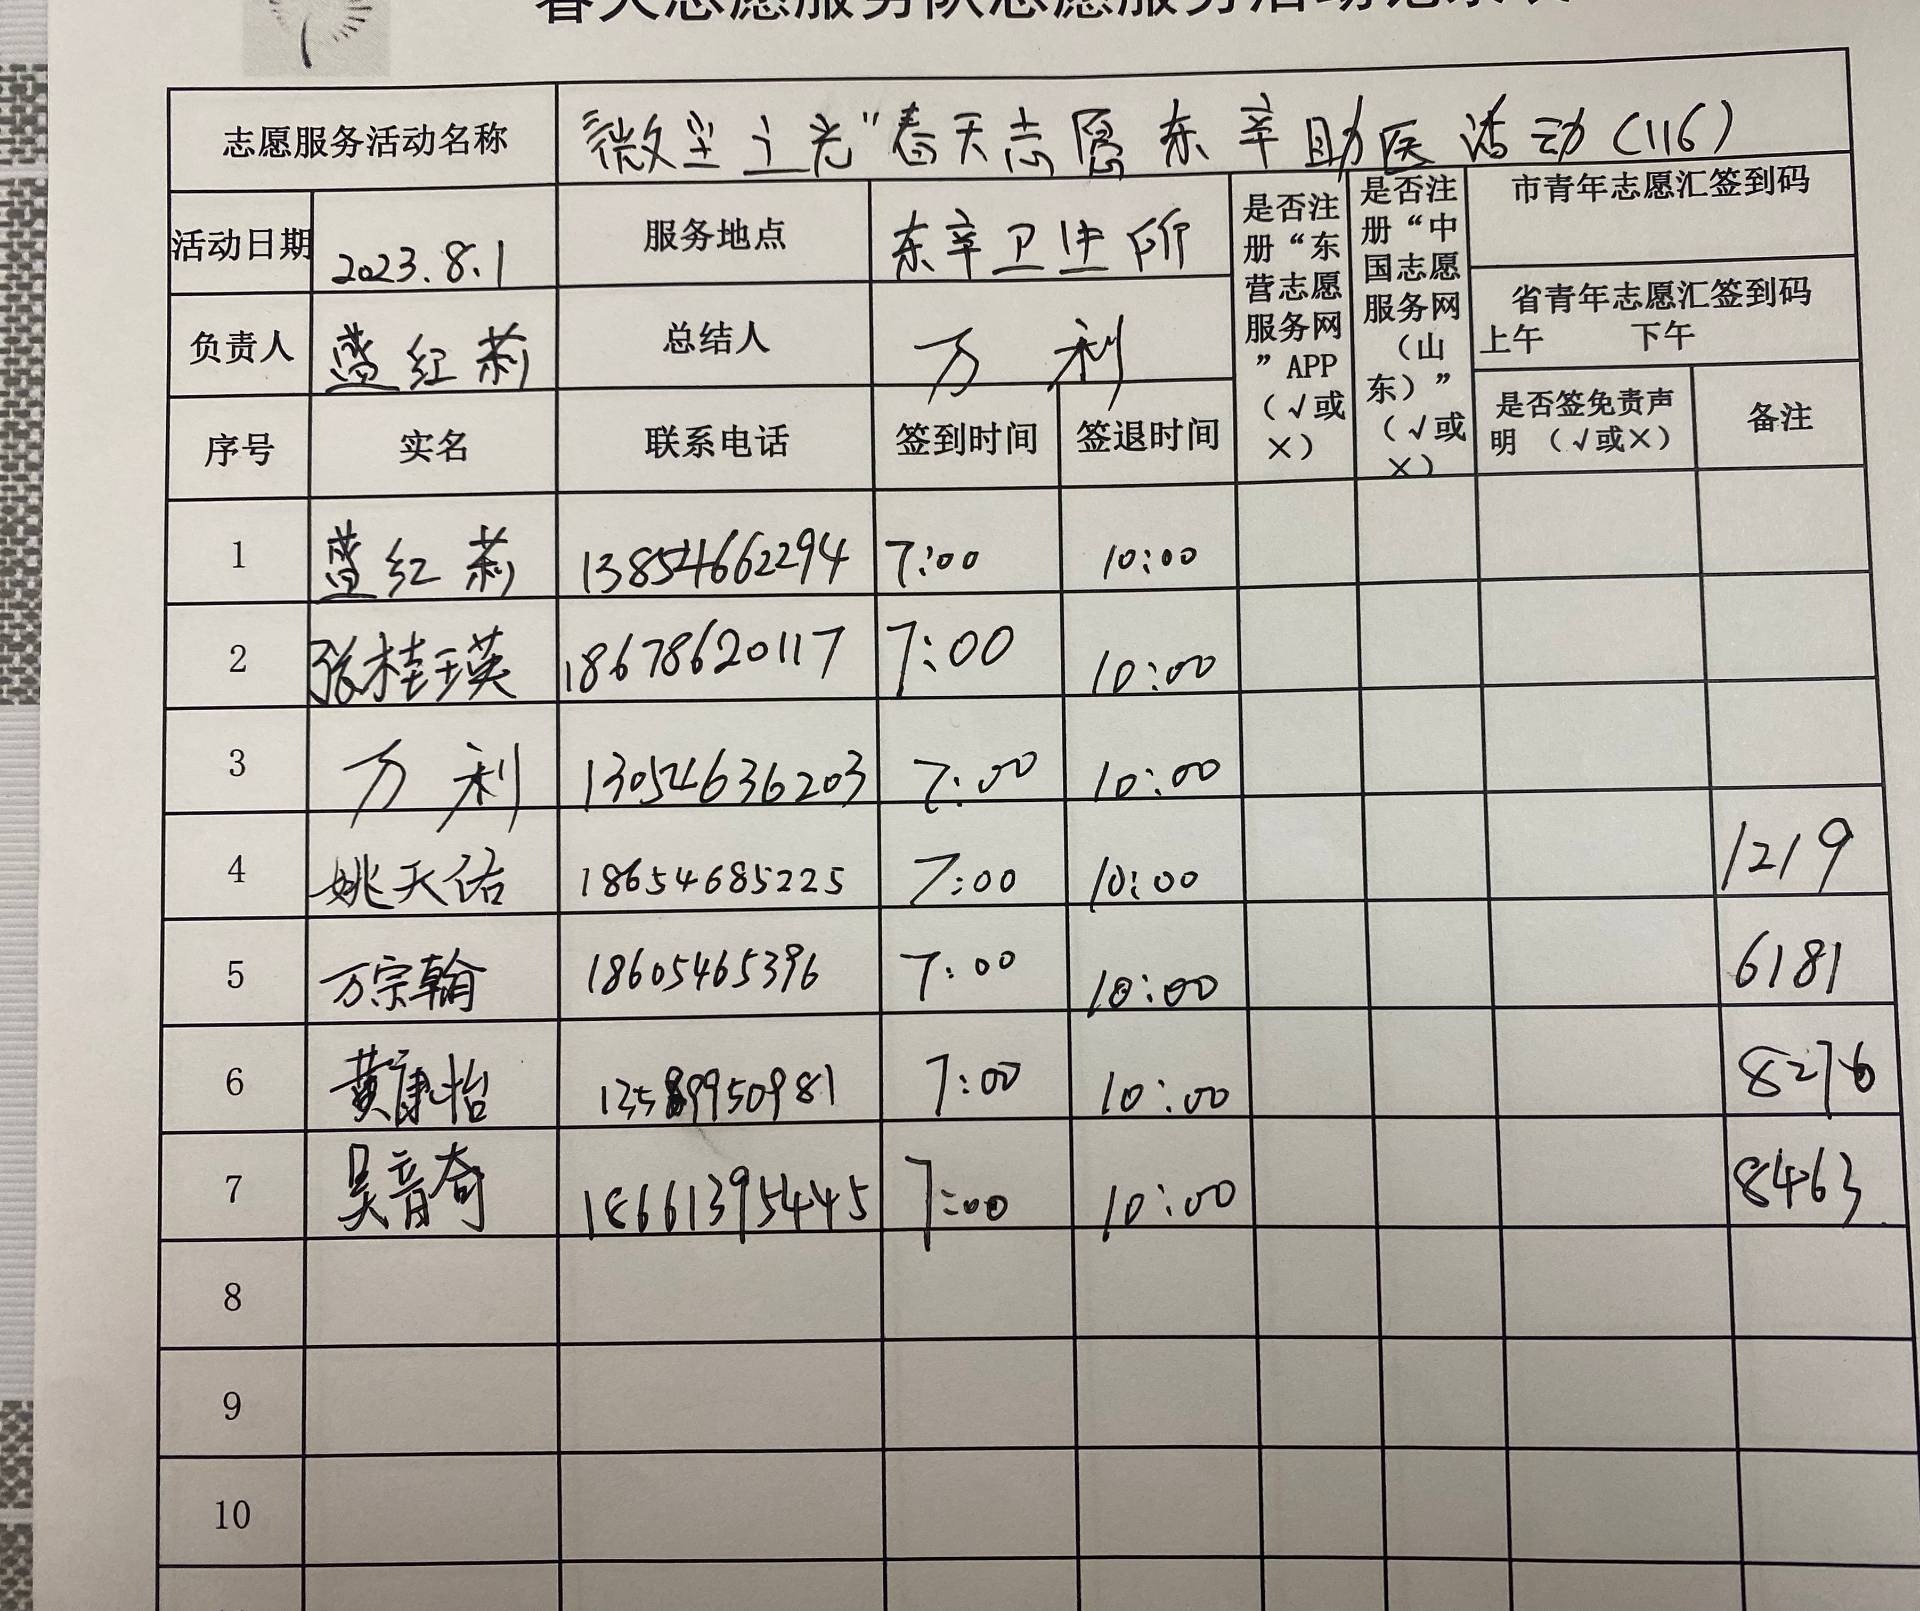 春天志愿服务队志愿服务活动记录表
志愿服务活动名称 “微尘之光”春天志愿东辛助医活动(116)
活动日期 2023.8.1 服务地点 东辛卫生所 是否注册“东营志愿服务网”APP（√或×） 是否注册“中国志愿服务网（山东）”（√或×） 市青年志愿汇签到码
省青年志愿汇签到码
上午 下午
负责人 红莉 总结人 万利
序号 实名 联系电话 签到时间 签退时间 是否签免责声明（√或×） 备注
1 红莉 13854662294 7:00 10:00
2 张桂瑛 18678620117 7:00 10:00
3 万利 13054636203 7:00 10:00
4 姚天佑 18654685225 7:00 10:00 1219
5 万宗翰 18605465396 7:00 10:00 6181
6 黄康怡 13589950981 7:00 10:00 8276
7 吴音奇 18661395445 7:00 10:00 8463
8
9
10